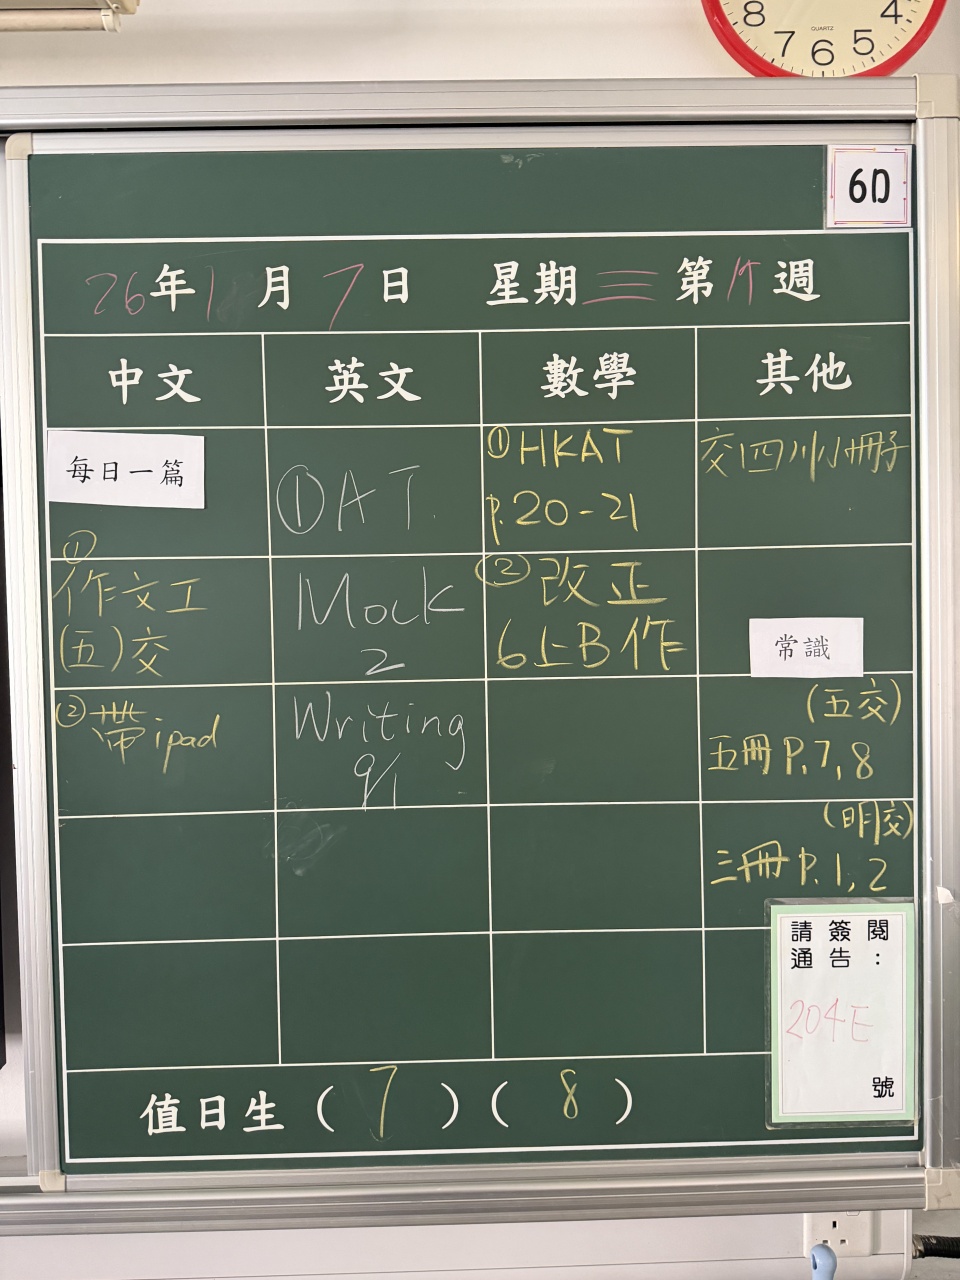 8 7 6 5 4
QUARTZ
6D
26年1月7日 星期三 第 週
中文 英文 數學 其他
每日一篇
①
作文工
(五)交
②帶ipad
①AT.
Mock
2
Writing
9/1
①HKAT
p.20-21
②改正
6上B作
交四川小冊子
常識
(五交)
五冊P.7,8
(明交)
三冊P.1,2
請簽閱
通告:
204E
號
值日生(7)(8)